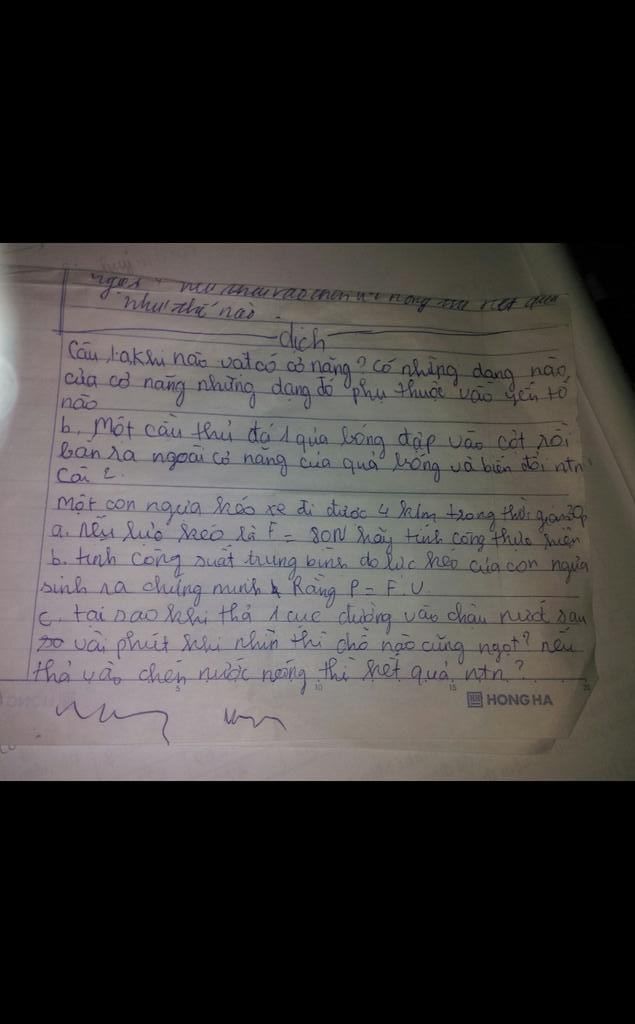 như thế nào.
dịch
Câu 1. a. Khi nào vật có cơ năng? Có những dạng nào
của cơ năng những dạng đó phụ thuộc vào yếu tố
nào
b. Một cầu thủ đá 1 quả bóng đập vào cột rồi
bắn ra ngoài cơ năng của quả bóng và biến đổi ntn
Câu 2.
Một con ngựa kéo xe đi được 4 klm trong thời gian 30p
a. nếu lực kéo là F = 80N hãy tính công thực hiện
b. tính công suất trung bình do lực kéo của con ngựa
sinh ra chứng minh Rằng P = F.V
c. tại sao khi thả 1 cục đường vào chậu nước sau
vài phút khi nhìn thì chỗ nào cũng ngọt? nếu
thả vào chén nước nóng thì kết quả ntn?
5 10 15 20
HONG HA